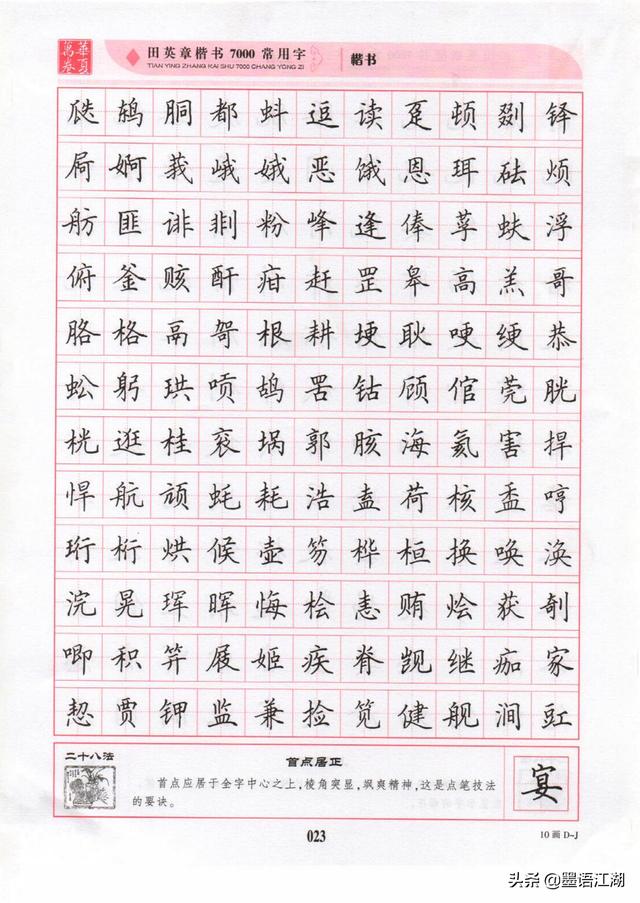 華頁
萬卷
田英章楷书7000常用字
TIAN YING ZHANG KAI SHU 7000 CHANG YONG ZI
楷书
瓞 鸫 胴 都 蚪 逗 读 趸 顿 剟 铎
屙 婀 莪 峨 娥 恶 饿 恩 珥 砝 烦
舫 匪 诽 剕 粉 峰 逢 俸 莩 蚨 浮
俯 釜 赅 酐 疳 赶 罡 皋 高 羔 哥
胳 格 鬲 哿 根 耕 埂 耿 哽 绠 恭
蚣 躬 珙 唝 鸪 罟 钴 顾 倌 莞 胱
桄 逛 桂 衮 埚 郭 胲 海 氦 害 捍
悍 航 颃 蚝 耗 浩 盍 荷 核 盉 哼
珩 桁 烘 候 壶 笏 桦 桓 换 唤 涣
浣 晃 珲 晖 悔 桧 恚 贿 烩 获 剞
唧 积 笄 屐 姬 疾 脊 觊 继 痂 家
恝 贾 钾 监 兼 捡 笕 健 舰 涧 豇
二十八法
首点居正
首点应居于全字中心之上,棱角突显,飒爽精神,这是点笔技法
的要诀。
宴
023
10画D~J
头条@墨语江湖